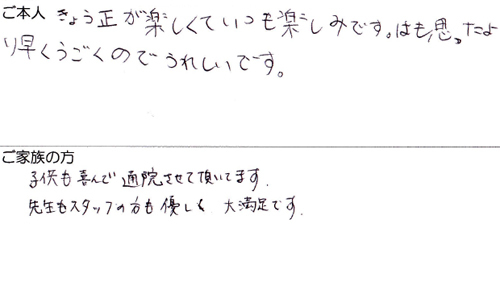 ご本人 きょう正が楽しくていつも楽しみです。はも思ったよ
り早くうごくのでうれしいです。
ご家族の方
子供も喜んで通院させて頂いてます.
先生もスタッフの方も優しく、大満足です.